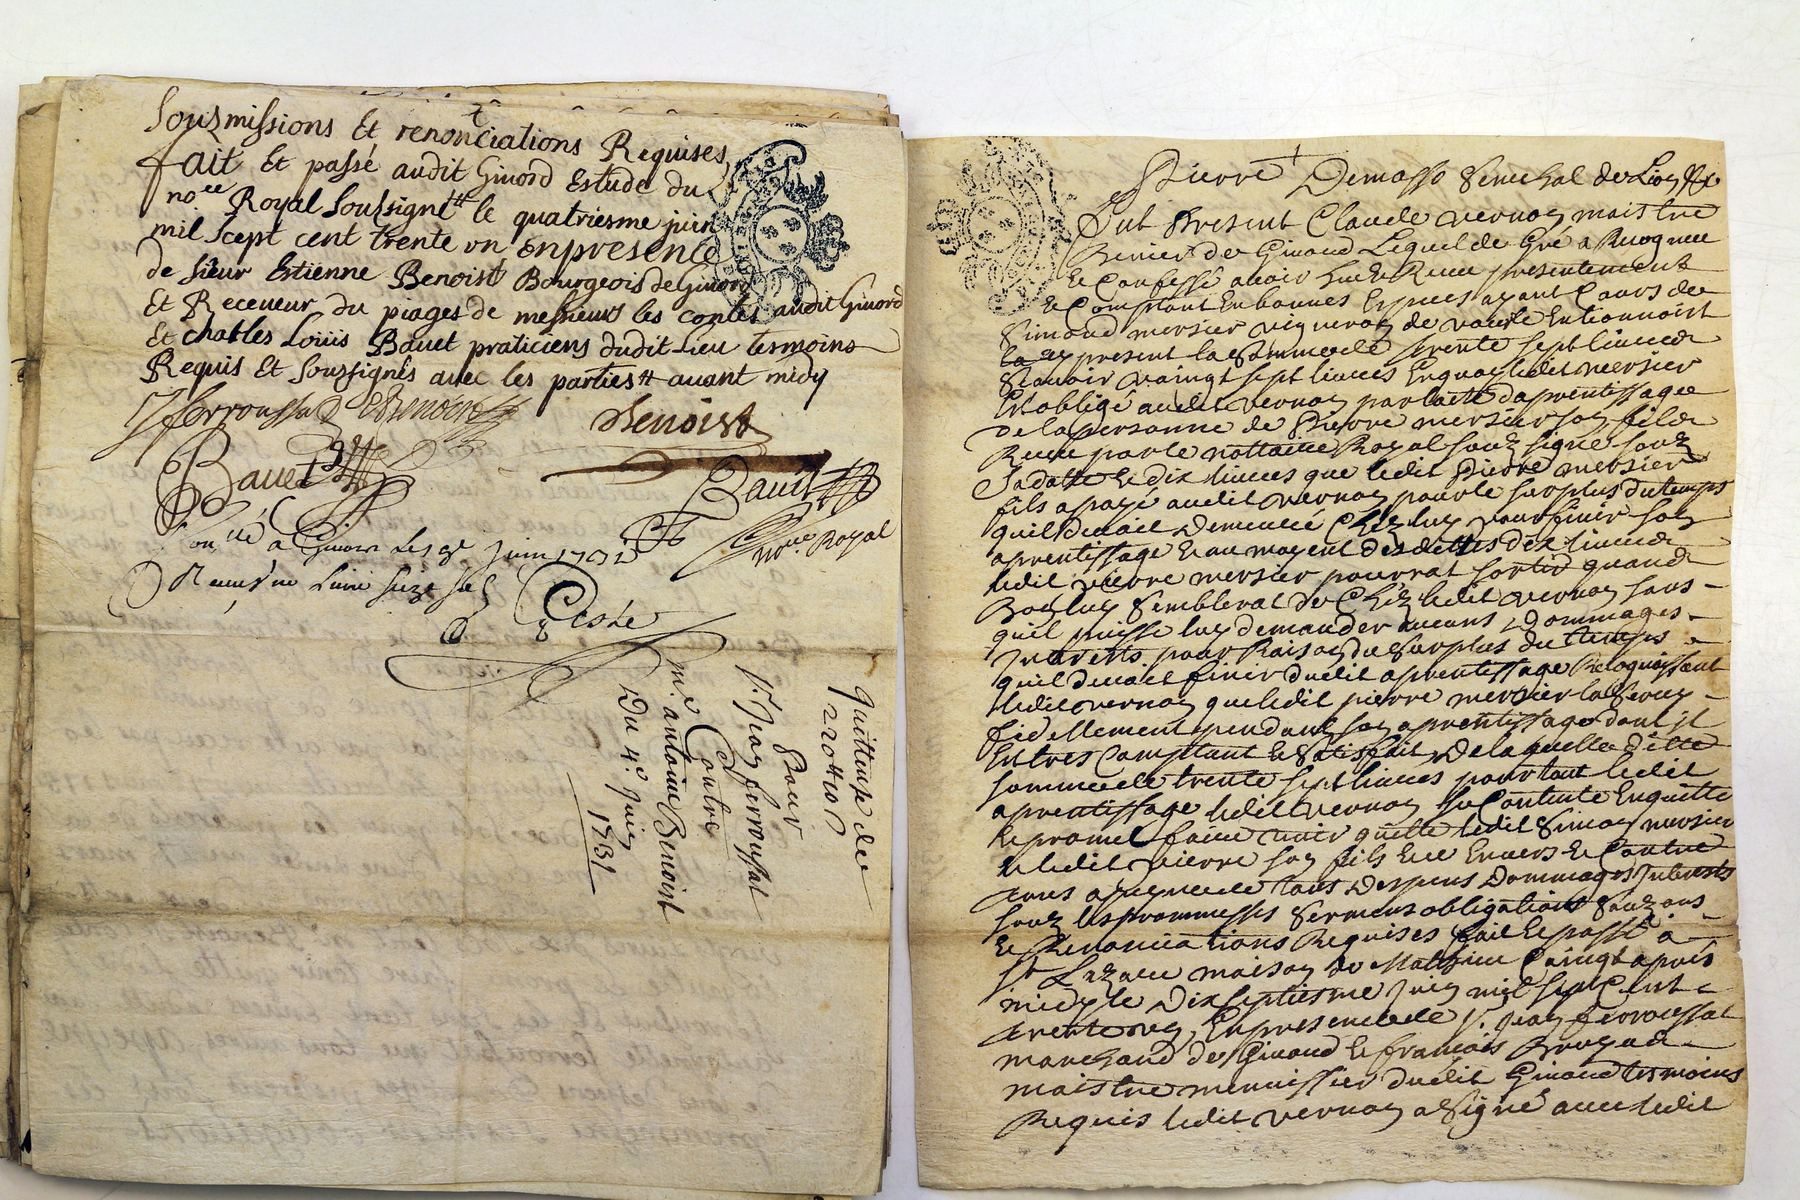 Souzmissions Et renonciations Requises
fait Et passé audit Givord Estude du
no.re Royal Soussigné le quatriesme juin
mil scept cent trente un enpresence
de sieur Estienne Benoist Bourgeois de Givord
Et Receveur du piages de messieurs les contes audit Givord
Et charles Louis Bavet praticiens dudit Lieu tesmoins
Requis Et Soussignés avec les parties avant midy
Jfferroussat EBenoist
Benoist
Bavet
Bavet
no.re Royal
Con.llé a Givors Le juin 1731
Receu une Livre seize sols
Coste
Quittense de
220# 10 s
Pour
S.r Jean ferroussat
Contre
m.e antoine Benoist
Du 4.e Juin
1731
Pierre Demasso Senechal de Lion
Fut Present Claude vernay maistre
de Givord Lequel de Gré a Recogneu
Et Confessé avoir heu Et Receu presentement
Et Comptant En bonnes Especes ayant Cours de
Simond mersier vigneron de
present la Somme de trente sept livres
Scavoir vaingt sept livres Enquoy ledit mersier
Est obligé audit vernay par lacte daprentissage
De la personne de Pierre mersier son fils
Receu par le nottaire Royal souz signé souz
Sa datte Et dix livres que ledit Pierre mersier
fils a payé audit vernay pour le surplus du temps
quil devait Demeurer Chez luy pour finir son
aprentissage Et au moyent desdittes dix livres
ledit Pierre mersier pourrat sortir quand
Bon luy Semblerat de Chez ledit vernay sans
quil puisse luy demander aucuns Dommages
Interests pour Raison du Surplus du temps
quil devait finir dudit aprentissage Recognoissant
ledit vernay que ledit pierre mersier la servy
fidellement pendant son aprentissage dont il
Est tres Comptant Et Satisfait De laquelle ditte
somme de trente sept livres pour tout ledit
aprentissage ledit vernay se Contente En quitte
Et promet faire tenir quitte ledit Simon mersier
Et ledit Pierre son fils Envers Et Contre
tous a peyne de tous Despens Dommages Interests
souz les prommesses Sermens obligations
Et Renonciations Requises fait Et passé a
St Lazare maison de Mathieu apres
midy le Dix septiesme Juin mil sept Cent
trente un, En presence de S.r Jean ferroussat
marchand de Givord Et francois
maistre menuissier dudit Givord tesmoins
Requis ledit vernay a Signé avec ledit